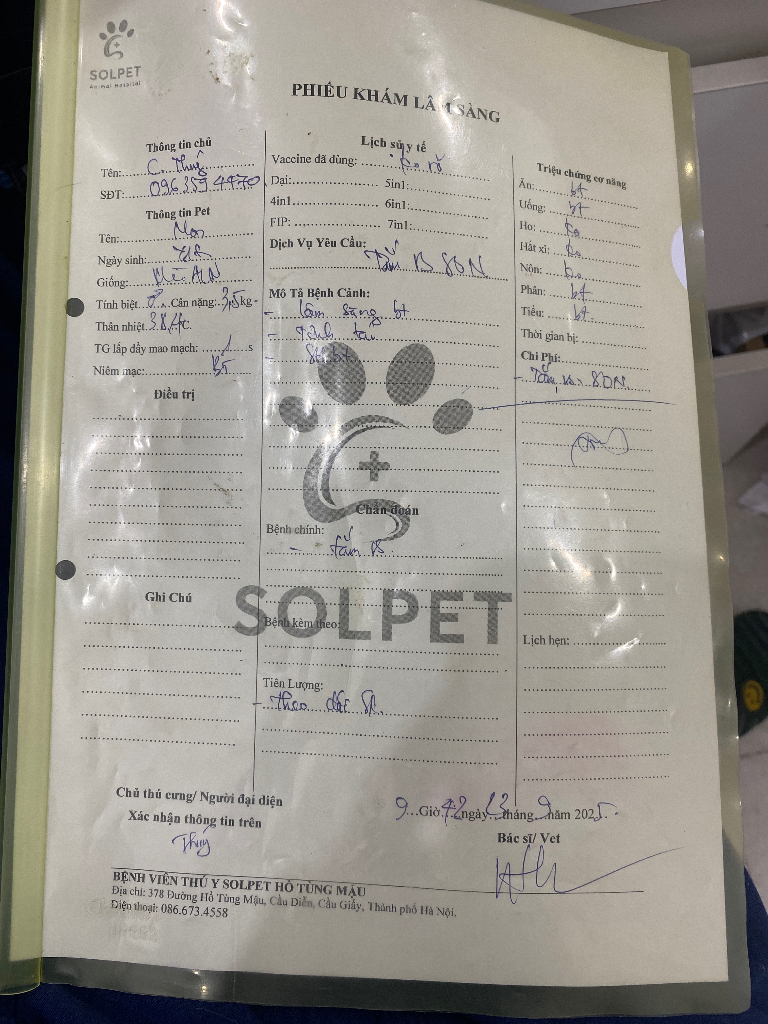 SOLPET
Animal Hospital
PHIẾU KHÁM LÂM SÀNG
Thông tin chủ
Tên: C. Thuý
SĐT: 096 359 4470
Thông tin Pet
Tên:
Ngày sinh:
Giống: Mèo ALN
Tính biệt ♂ Cân nặng: 3,5 kg
Thân nhiệt 38,4°C
TG lấp đầy mao mạch: 1 s
Niêm mạc: Bt
Điều trị
Ghi Chú
Lịch sử y tế
Vaccine đã dùng: ko rõ
Dại: 5in1:
4in1 6in1:
FIP: 7in1:
Dịch Vụ Yêu Cầu:
Tắm
Mô Tả Bệnh Cảnh:
- Lâm sàng bt
- Tỉnh táo
-
Chẩn đoán
Bệnh chính:
- Tắm
SOLPET
Bệnh kèm theo:
Tiên Lượng:
- Theo dõi
Triệu chứng cơ năng
Ăn: bt
Uống: bt
Ho: ko
Hắt xì: ko
Nôn: ko
Phân: bt
Tiểu: bt
Thời gian bị:
Chi Phí:
- Tắm
Lịch hẹn:
Chủ thú cưng/ Người đại diện
Xác nhận thông tin trên
Thuý
9 Giờ 42 ngày 13 tháng 9 năm 2025
Bác sĩ/ Vet
BỆNH VIÊN THÚ Y SOLPET HỒ TÙNG MẬU
Địa chỉ: 378 Đường Hồ Tùng Mậu, Cầu Diễn, Cầu Giấy, Thành phố Hà Nội.
Điện thoại: 086.673.4558